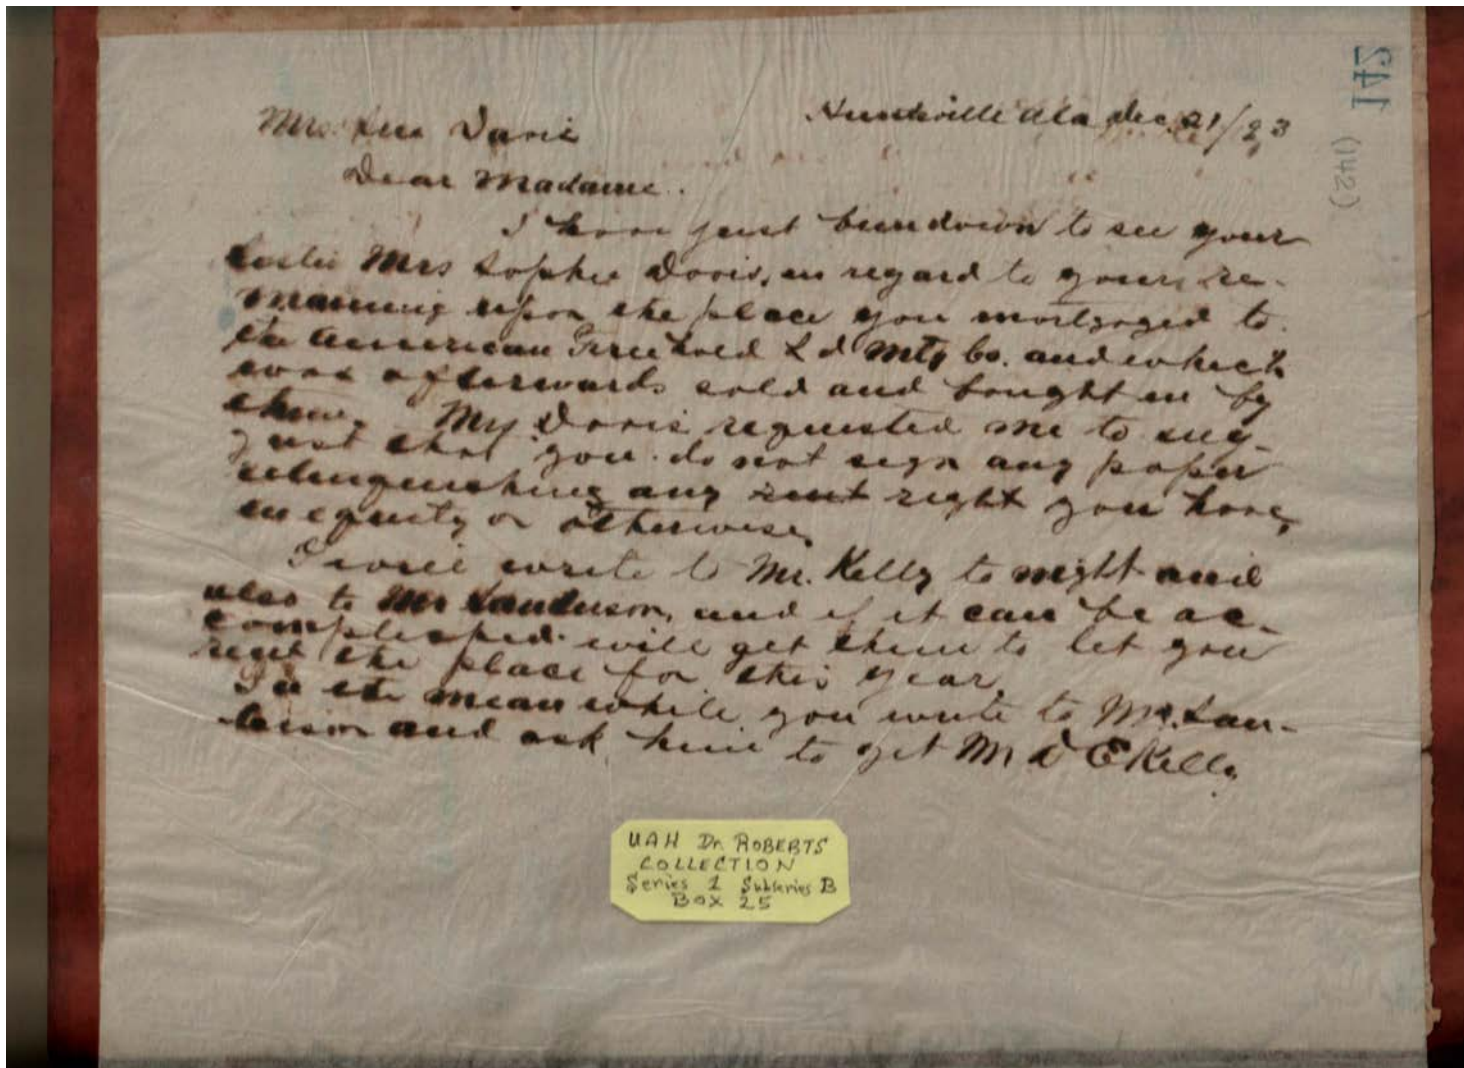 142
(142)
Huntsville Ala Dec 21/93
Mrs. Lue Davis
Dear Madame.
I have just been down to see your
Mrs Sophie Davis, in regard to your re-
maining upon the place you mortgaged to
the American Freehold Ld Mtg Co. and which
was afterwards sold and bought in by
them. Davis requested me to sug-
gest that you do not sign any paper
relinquishing any rent right you have,
in equity or otherwise.
I will write to Mr. Kelly to night and
also to Mr Sanderson, and if it can be ac-
complished will get them to let you
rent the place for this year.
In the mean while you write to Mr. San-
derson and ask him to get Mr D E Kelly
UAH Dr. ROBERTS
COLLECTION
Series 1 Subseries B
BOX 25